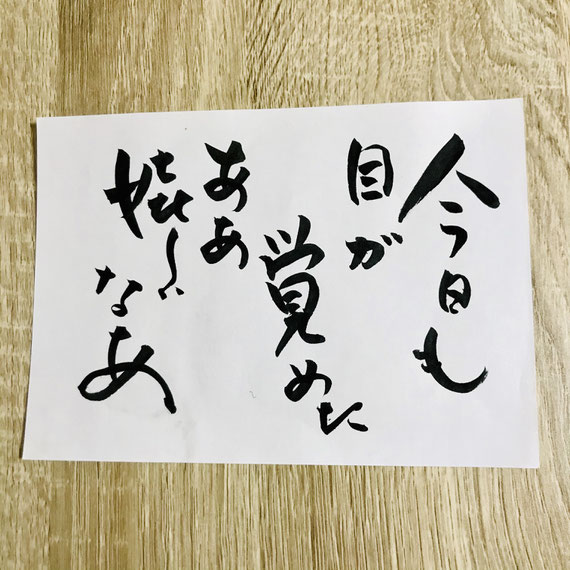 今日も
目が
覚めた
ああ
嬉しい
なあ